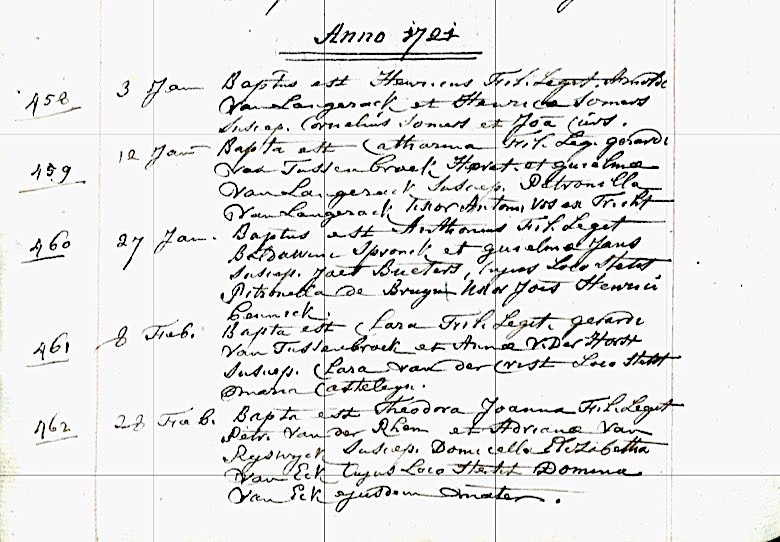 Anno 1721
458 3 Jan Baptus est Henricus Fil. Leget. Arnoldi
Van Langerack et Henrica Somers
Suscep. Cornelius Somers et Joa
459 12 Jan Bapta est Catharina Fil. Leg. gerardi
van Tussenbroek et guielma
Van Langerack Suscep. Petronella
Van Langerack Uxor Antoni Vos ex Tricht
460 27 Jan. Baptus est Anthonius Fil. Leget
Baldawini Spronck et guielma Jans
Suscep. Jaes Bueters, Cujus Loco Stetit
Petronella de Bruyn Uxor Jois Henrici
461 8 Feb. Bapta est Clara Fil. Legit. gerardi
Van Tussenbroek et Anna V. Der Horst
Suscep. Clara van der Loco Stetit
Maria Casteleyn.
462 28 Feb. Bapta est Theodora Joanna Fil. Leget
Petri Van der Rhem et Adriana Van
Ryswyck Suscep. Domicella Elizabetha
Van Eck Cujus Loco Stetit Domina
Van Eck ejusdem mater.